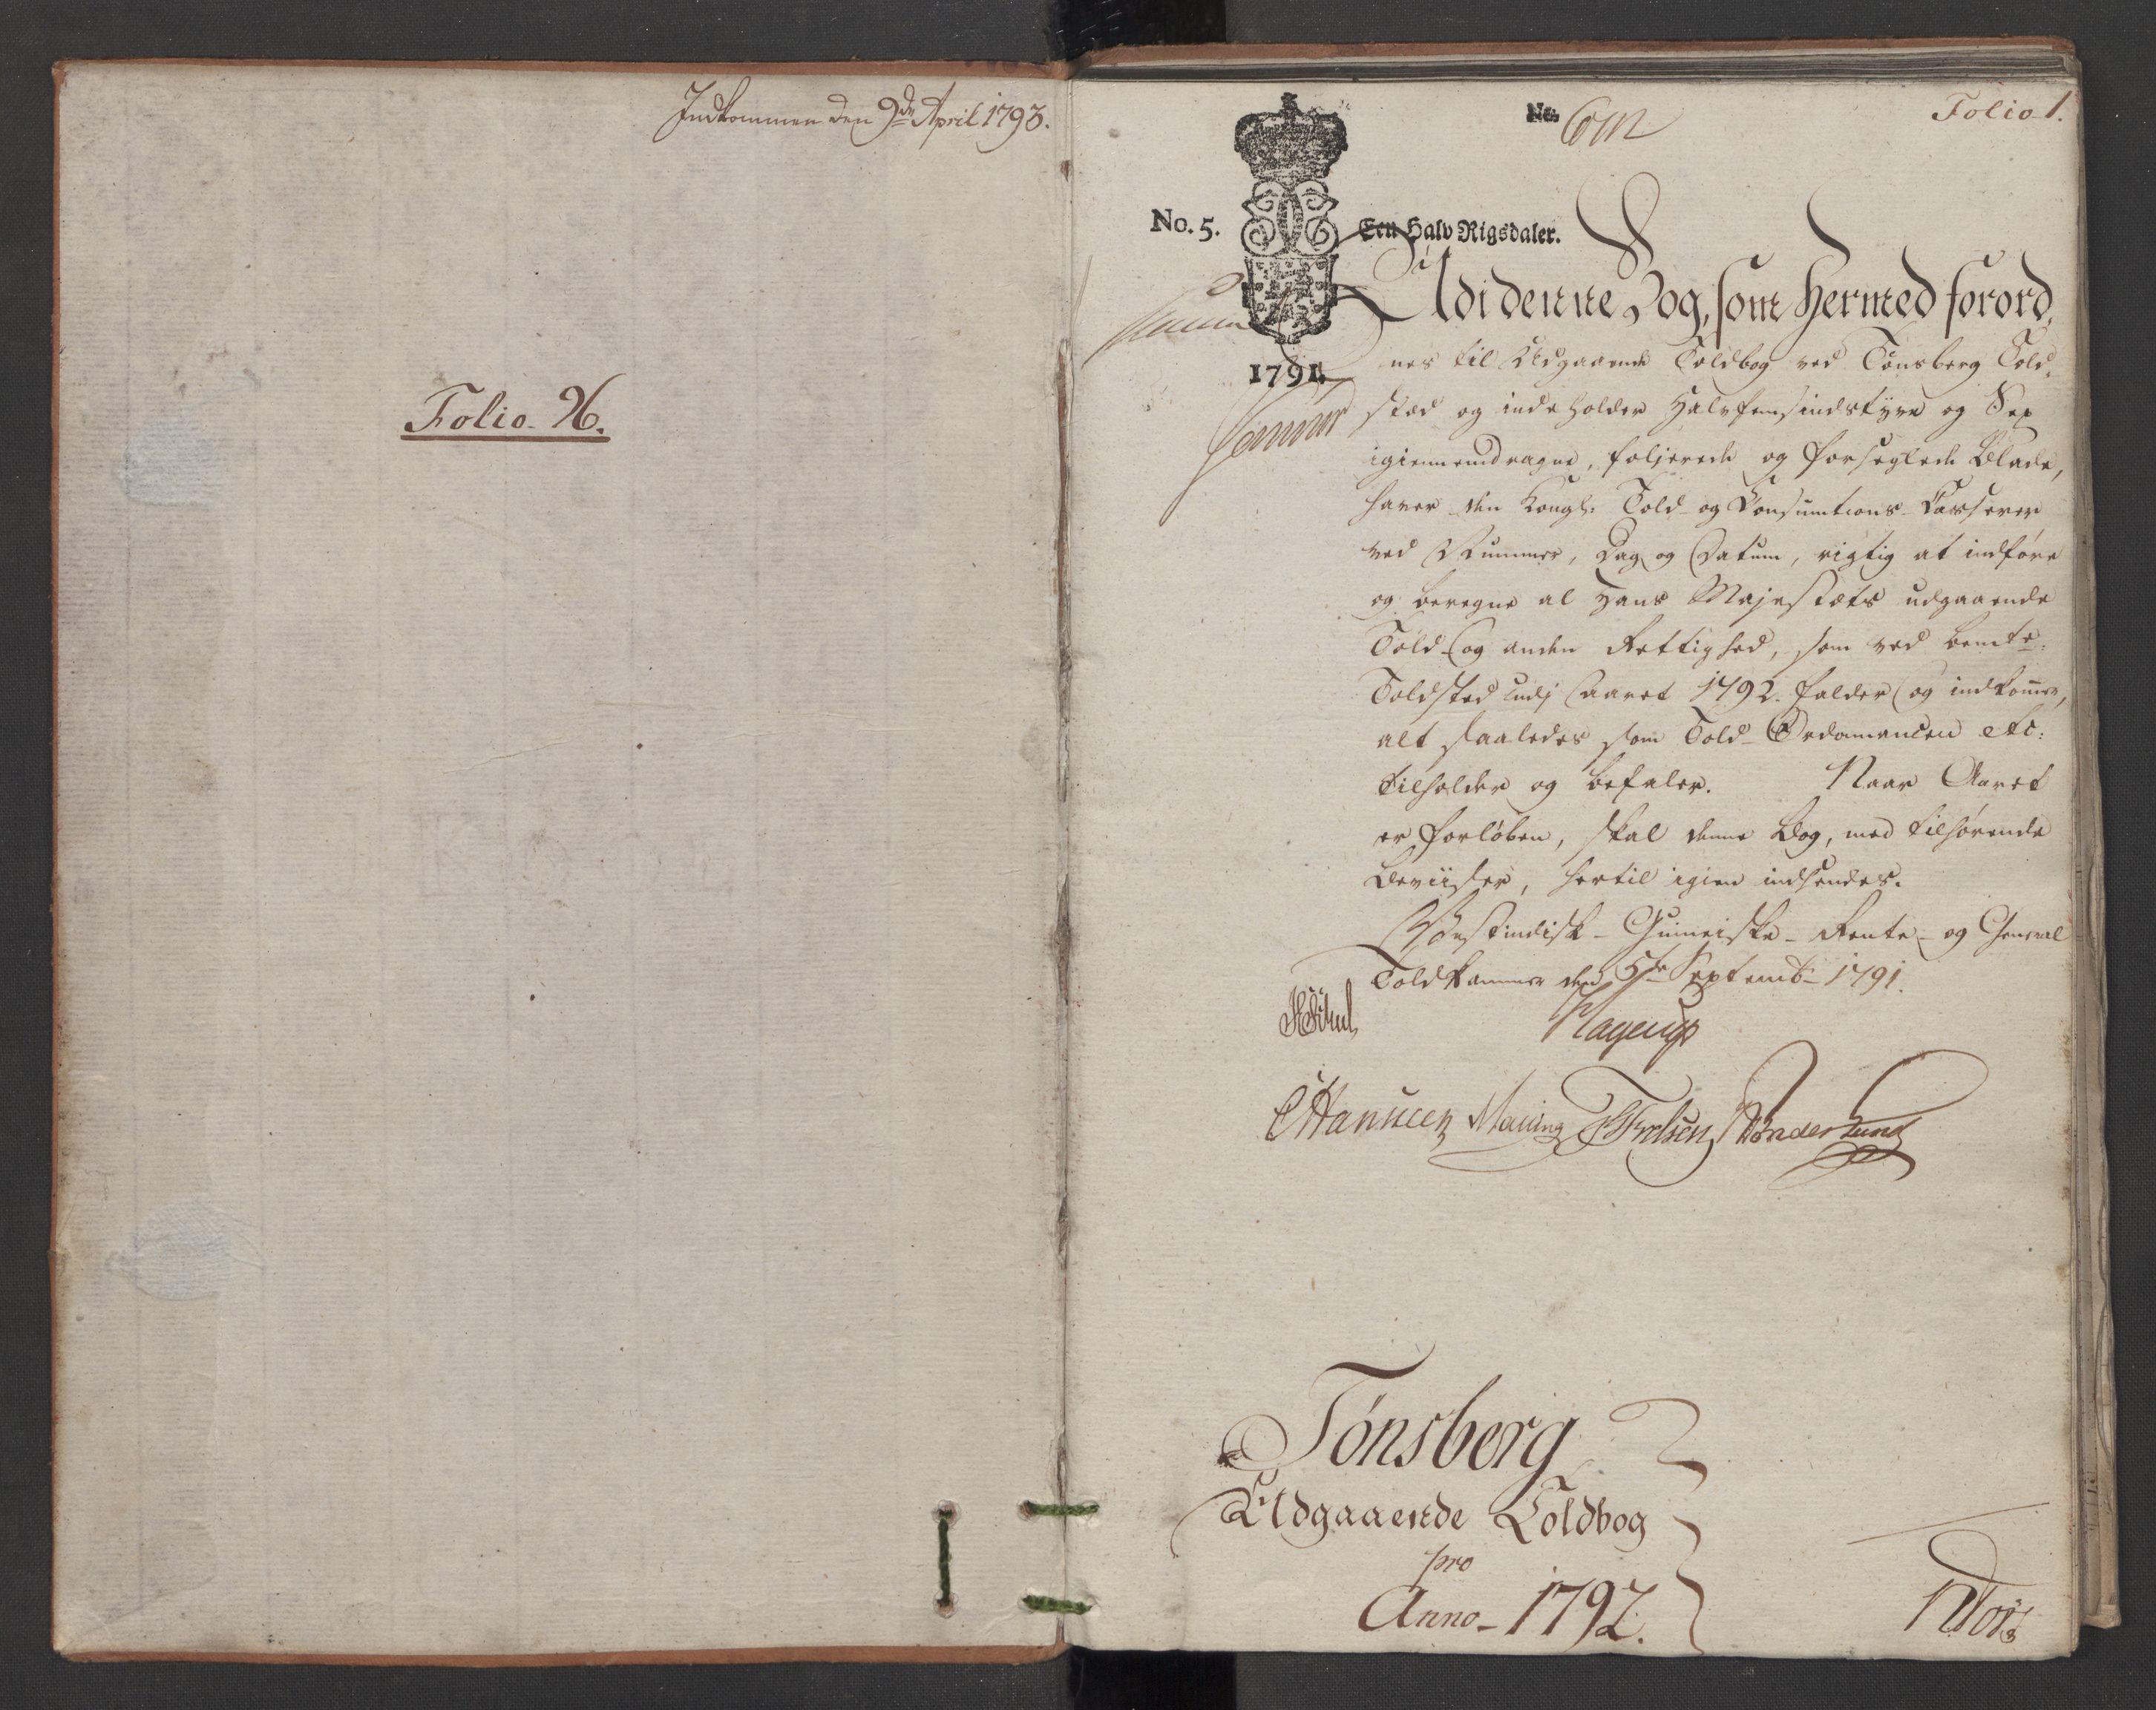 Indkommen den 9de April 1793.
Folio 96.
No.
Folio 1.
No. 5.
Een Halv Rigsdaler.
1791.
Udi denne Bog, som hermed forord,
nes til Udgaaende Toldbog ved Tönsberg Told,
stæd og indeholder Halvfemsindstyve og Sex
igiennemdragne, folierede og forseglede Blade,
haver den Kongl: Told- og Consumtions-Casserer
ved Nummer, Dag og Datum, rigtig at indföre
og beregne al Hans Majestæts udgaaende
Told og anden Rettighed, som ved bemte:
Toldsted udj Aaret 1792. falder og indkommer,
alt saaledes som Told-Ordonancen etc:
tilholder og befaler. Naar Aaret
er forlöben, skal denne Bog, med tilhörende
Beviiser, hertil igien indsendes.
Westindisk- Guineiske- Rente- og General
Toldkammer den 5te Septembr 1791.
Hagerup
Tönsberg
Udgaaende Toldbog
pro
Anno 1792.